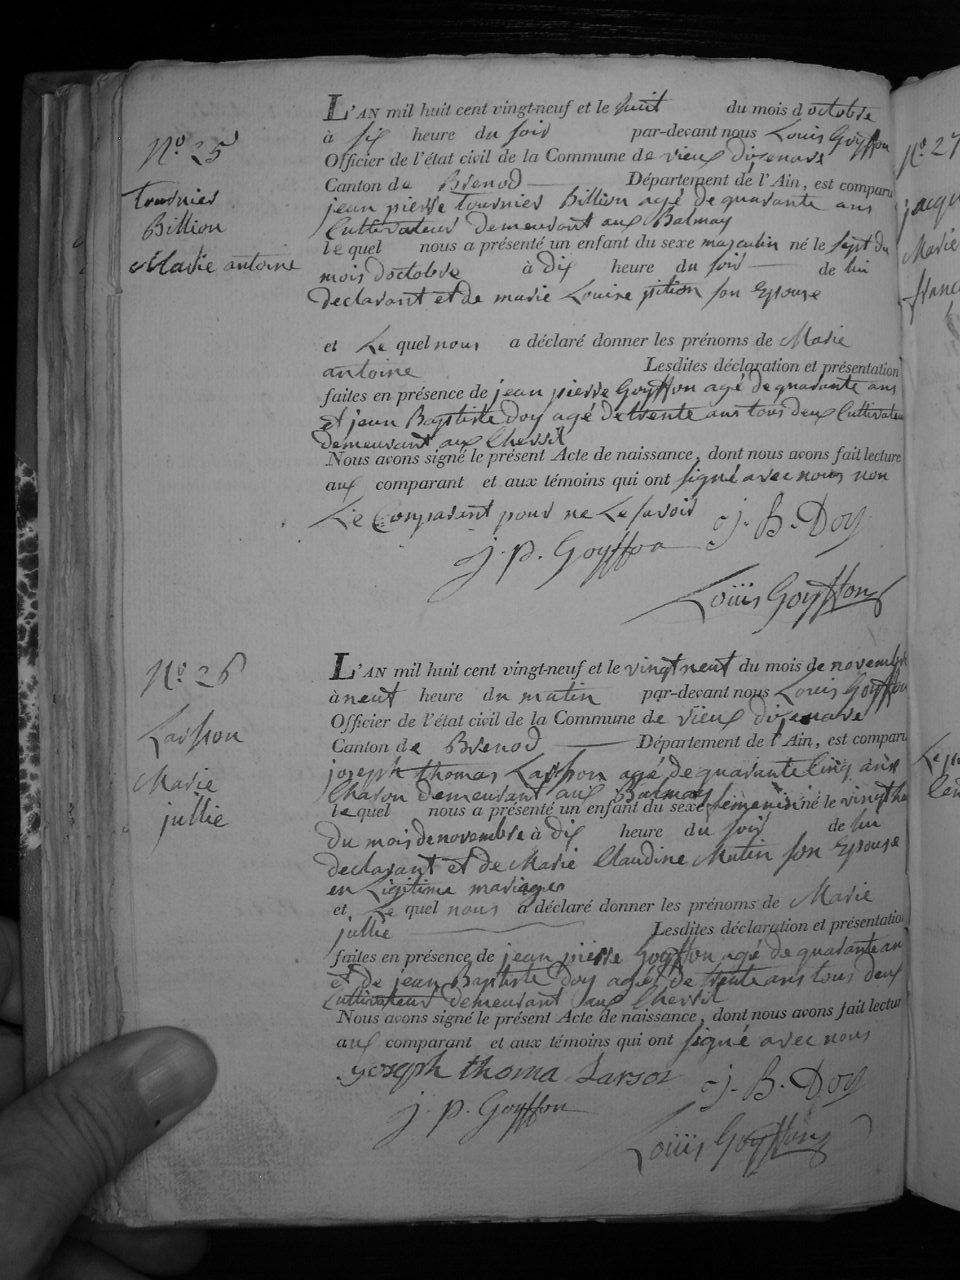 N.o 25
tournier
Billion
Marie antoine
L'AN mil huit cent vingt-neuf et le huit du mois d octobre
à six heure du soir par-devant nous Louis Goyffon
Officier de l'état civil de la Commune de vieux d'izenave
Canton de Brenod Département de l'Ain, est comparu
jean pierre tournier Billion agé de quarante ans
Cultivateur demeurant aux Balmay
le quel nous a présenté un enfant du sexe masculin né le sept du
mois d'octobre à dix heure du soir de lui
declarant et de marie Louise pition son Epouse
et Le quel nous a déclaré donner les prénoms de Marie
antoine Lesdites déclaration et présentation
faites en présence de jean pierre Goyffon agé de quarante ans
et jean Baptiste Doy agé de trente ans tous deux Cultivateu
demeurant aux Chevril
Nous avons signé le présent Acte de naissance, dont nous avons fait lecture
aux comparant et aux témoins qui ont signé avec nous non
Le Comparant pour ne Le savoir
J. B. Doy
j. p. Goyffon
Loüis Goyffon
N.o 26
Larsson
Marie
jullie
L'AN mil huit cent vingt-neuf et le vingt neuf du mois de novembre
à neuf heure du matin par-devant nous Louis Goyffon
Officier de l'état civil de la Commune de vieux d'izenave
Canton de Brenod Département de l'Ain, est comparu
joseph thomas Larsson agé de quarante Cinq ans
Charon demeurant aux Balmay
le quel nous a présenté un enfant du sexe femenin né le vingt hu
du mois de novembre à dix heure du soir de lui
declarant et de Marie Claudine Mutin son Epouse
en Ligitime mariages
et Le quel nous a déclaré donner les prénoms de Marie
jullie Lesdites déclaration et présentation
faites en présence de jean pierre Goyffon agé de quarante an
et de jean Baptiste Doy agés de trente ans tous deux
Cultivateurs demeurant aux Chevril
Nous avons signé le présent Acte de naissance, dont nous avons fait lectur
aux comparant et aux témoins qui ont signé avec nous
joseph thoma Larson
J. B. Doy
j. p. Goyffon
Loüis Goyffon
N.o 27
jacqu
Marie
franc